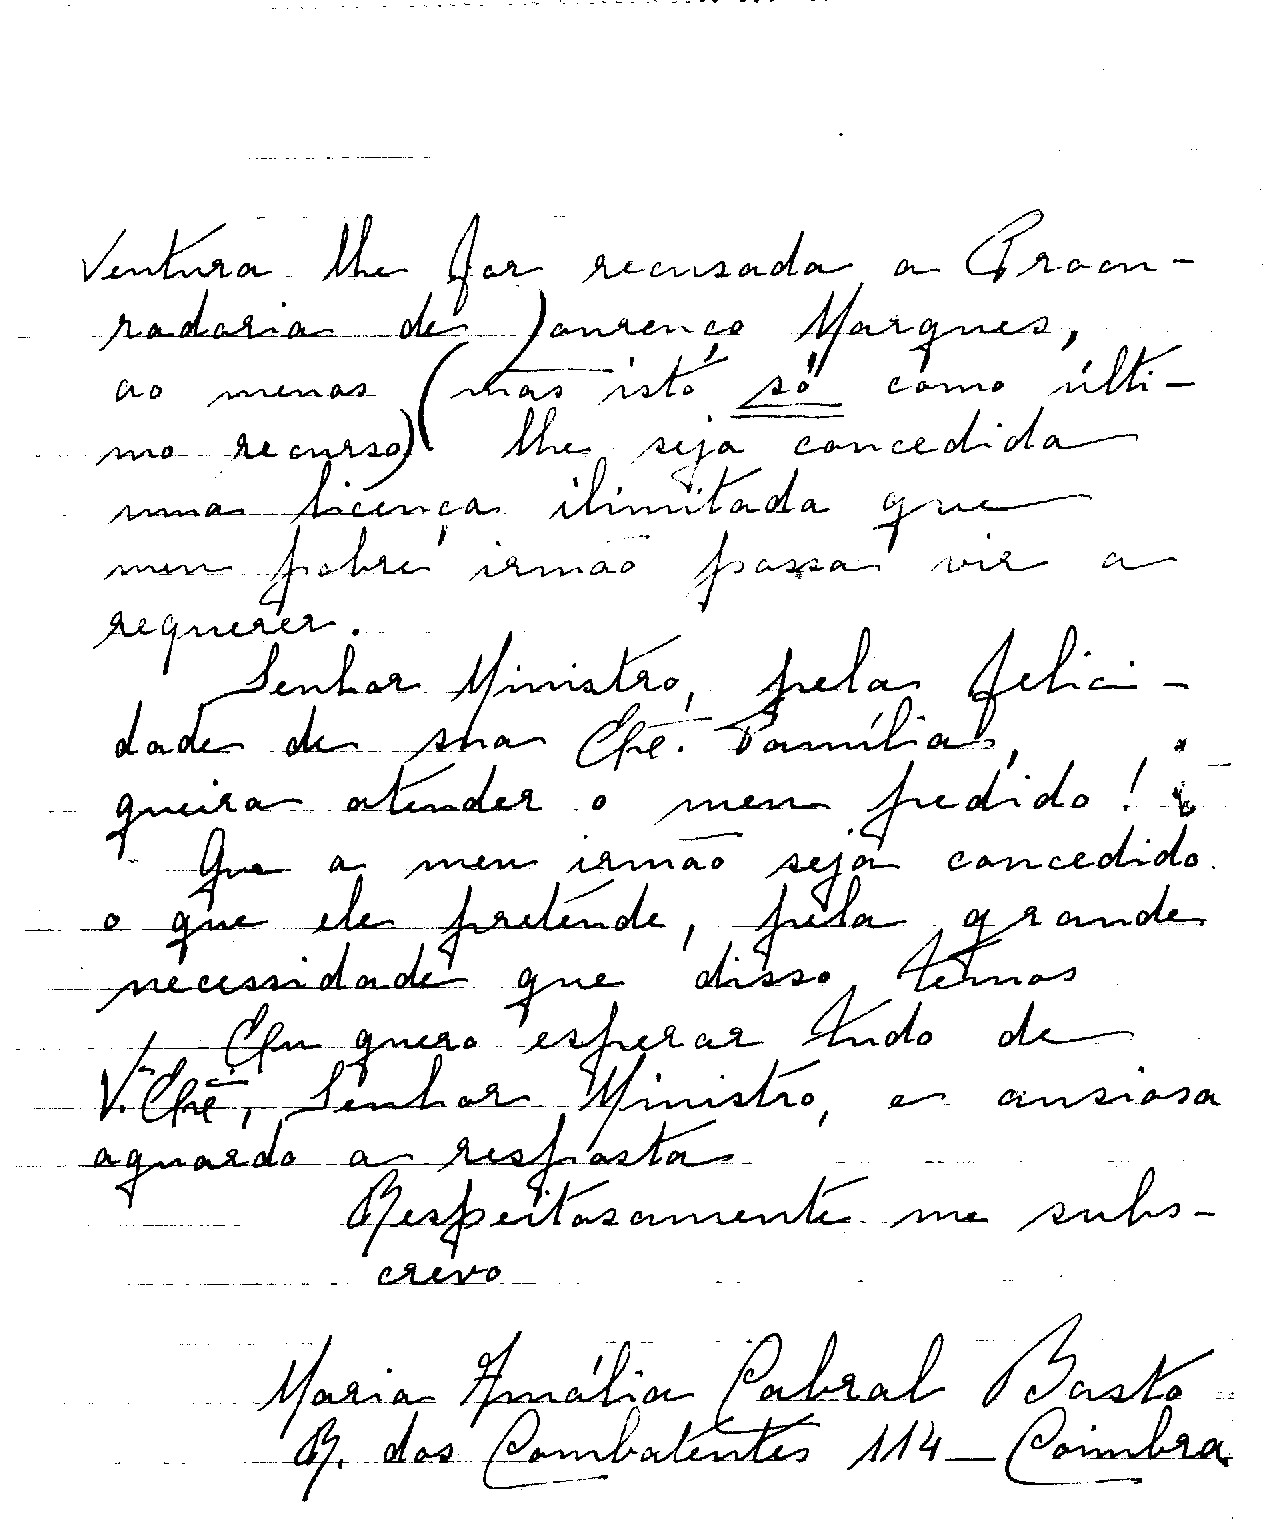 ventura lhe for recusada a Procu-
radoria de Lourenço Marques,
ao menos (mas isto só como últi-
mo recurso) lhe seja concedida
uma licença ilimitada que
meu pobre irmão possa vir a
requerer.
Senhor Ministro, pela felici-
dade de sua Exª. Família,
queira atender o meu pedido!
Que a meu irmão seja concedido
o que ele pretende, pela grande
necessidade que disso temos
Eu quero esperar tudo de
V. Exª, Senhor Ministro, e ansiosa
aguardo a resposta
Respeitosamente me subs-
crevo
Maria Amália Cabral Basto
R. dos Combatentes 114 - Coimbra